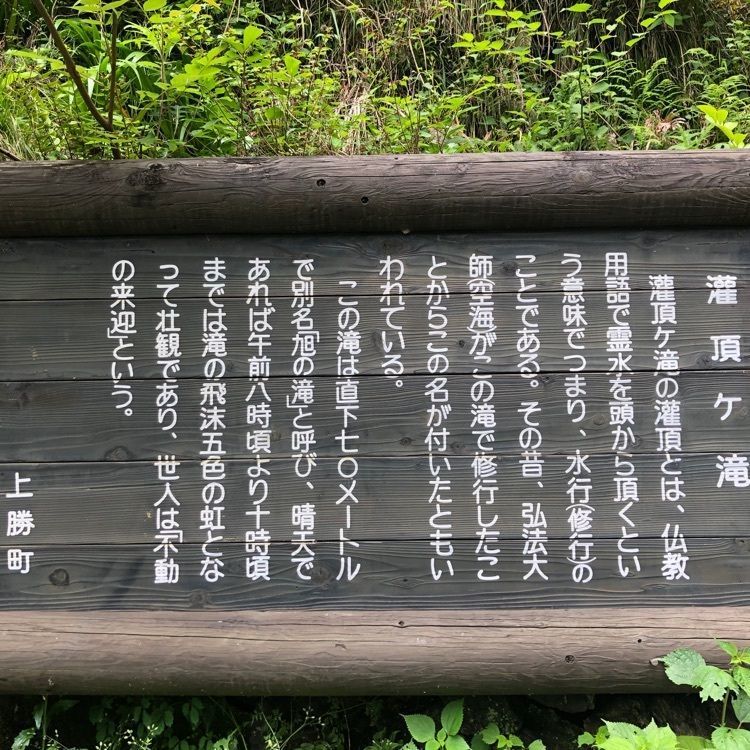 灌頂ケ滝
灌頂ケ滝の灌頂とは、仏教
用語で霊水を頭から頂くとい
う意味でつまり、水行(修行)の
ことである。その昔、弘法大
師(空海)がこの滝で修行したこ
とからこの名が付いたともい
われている。
この滝は直下七〇メートル
で別名旭の滝」と呼び、晴天で
あれば午前八時頃より十時頃
までは滝の飛沫五色の虹とな
って壮観であり、世人は「不動
の来迎」という。
上勝町